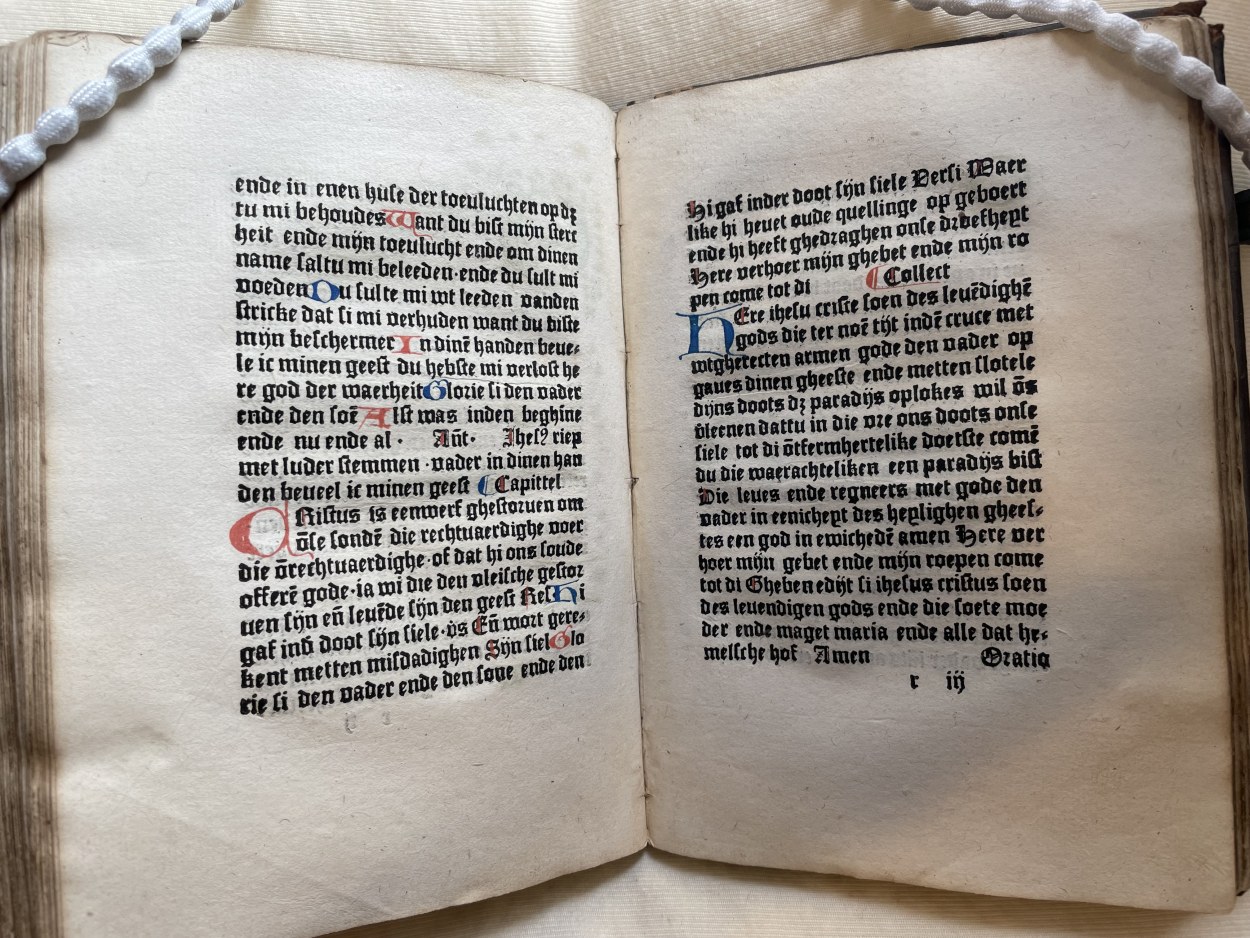 ende in enen huse der toeuluchten op dꝫ
tu mi behoudes Want du bist mijn sterc
heit ende mijn toeulucht ende om dinen
name saltu mi beleeden·ende du sult mi
voeden Du sulte mi wt leeden vanden
stricke dat si mi verhuden want du biste
mijn beschermer In dinē handen beue⸗
le ic minen geest du hebste mi verlost he
re god der waerheit Glorie si den vader
ende den soē Alst was inden beghine
ende nu ende al· Añt· Jhesꝰ riep
met luder stemmen·vader in dinen han
den beueel ic minen geest ⸿Capittel
CRistus is eenwerf ghestoruen om
ōse sondē die rechtuaerdighe voer
die ōrechtuaerdighe·of dat hi ons soude
offerē gode·ia wi die den vleische gestor
uen sijn eñ leuēde sijn den geest Res Hi
gaf inď doot sijn siele·v̄s Eñ wort gere⸗
kent metten misdadighen Sijn siel Glo
rie si den vader ende den sone ende den
Hi gaf inder doot sijn siele Versi Waer
like hi heuet oude quellinge op geboert
ende hi heeft ghedraghen onse droefheyt
Here verhoer mijn ghebet ende mijn ro
pen come tot di ⸿Collect
HEre ihesu criste soen des leuēdighē
gods die ter noē tijt indē cruce met
wtgherecten armen gode den vader op
gaues dinen gheeste ende metten slotele
dijns doots dꝫ paradijs oplokes wil ōs
vleenen dattu in die vre ons doots onse
siele tot di ōtfermhertelike doetste comē
du die waerachteliken een paradijs bist
Die leues ende regneers met gode den
vader in eenicheyt des heylighen ghees⸗
tes een god in ewichedē amen Here ver
hoer mijn gebet ende mijn roepen come
tot di Ghebenedijt si ihesus cristus soen
des leuendigen gods ende die soete moe
der ende maget maria ende alle dat he⸗
melsche hof Amen Oratio
r iij